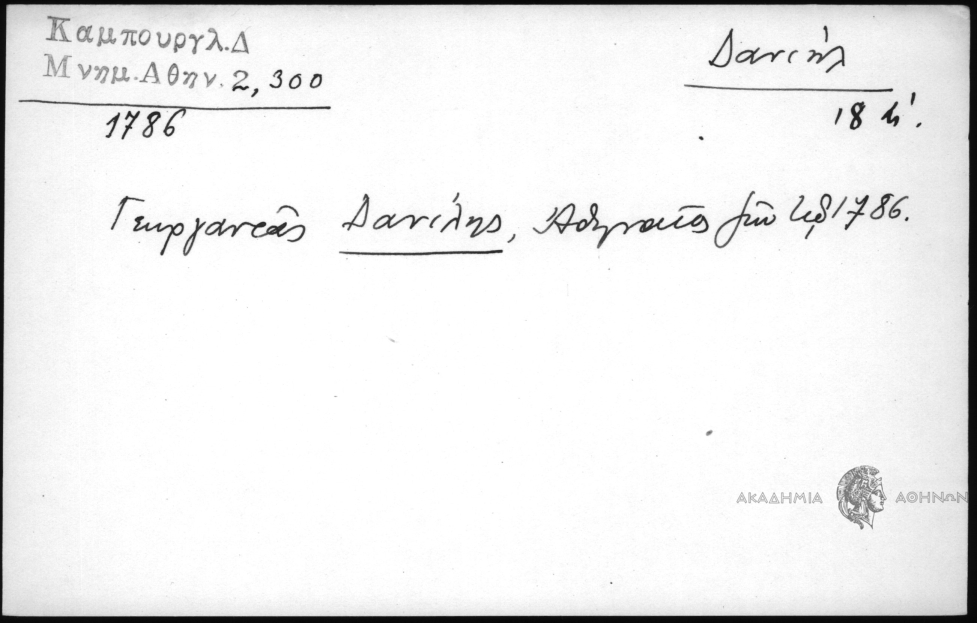 Καμπουργλ.Δ
Μνημ.Αθην. 2,300
1786
Δανιήλ
18
Γεωργαντᾶς Δανίλης, Ἀθηναῖος 1786.
ΑΚΑΔΗΜΙΑ ΑΘΗΝΩΝ